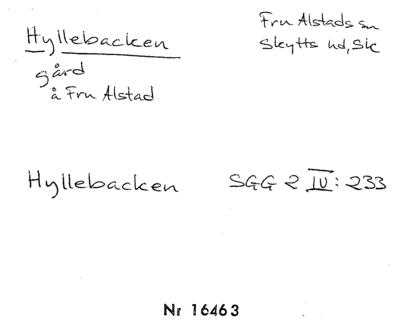 Hyllebacken
Fru Alstads sn
Skytts hd, Sk
gård
å Fru Alstad
Hyllebacken SGG 2 IV: 233
Nr 16463